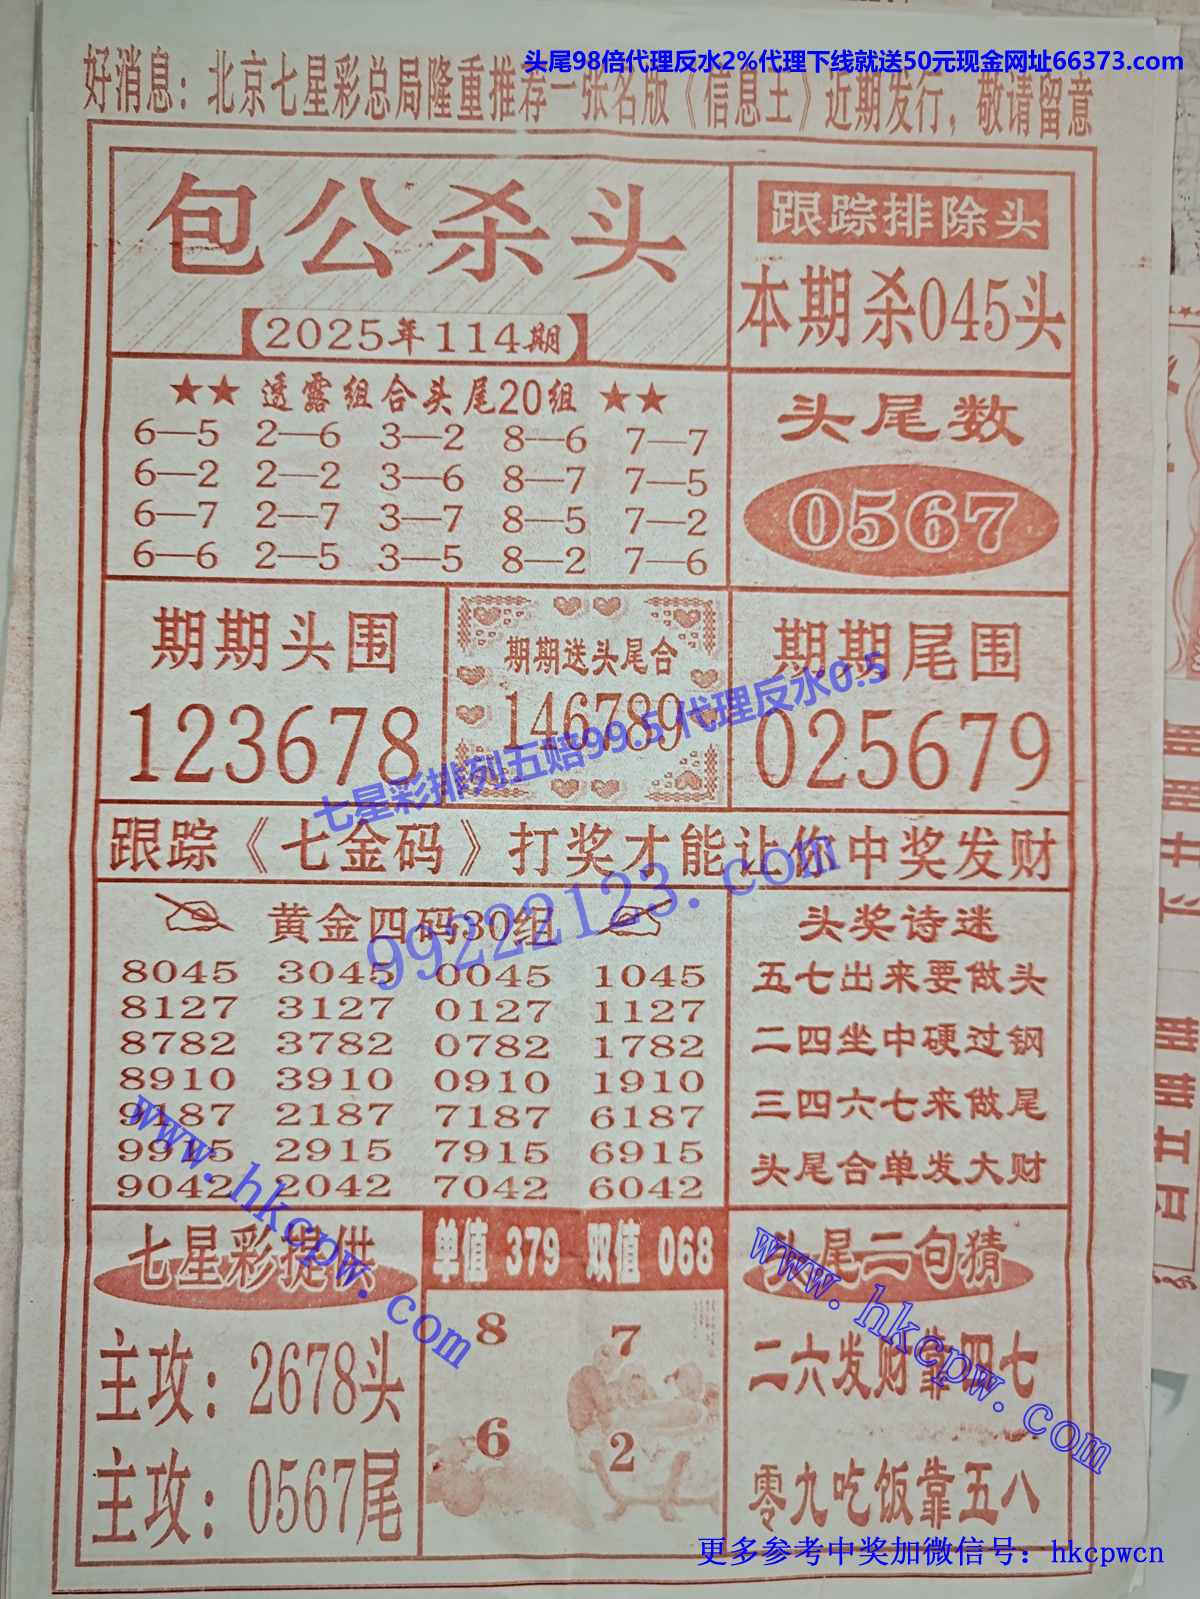 头尾98倍代理反水2%代理下线就送50元现金网址66373.com
好消息：北京七星彩总局隆重推荐一张名版《信息王》近期发行，敬请留意
包公杀头
【2025年114期】
跟踪排除头
本期杀045头
★★ 透露组合头尾20组 ★★
6—5 2—6 3—2 8—6 7—7
6—2 2—2 3—6 8—7 7—5
6—7 2—7 3—7 8—5 7—2
6—6 2—5 3—5 8—2 7—6
头尾数
0567
期期头围
123678
期期送头尾合
146789
期期尾围
025679
七星彩排列五赔99.5 代理反水0.5
跟踪《七金码》打奖才能让你中奖发财
99222123.com
黄金四码30组
8045 3045 0045 1045
8127 3127 0127 1127
8782 3782 0782 1782
8910 3910 0910 1910
9187 2187 7187 6187
9915 2915 7915 6915
9042 2042 7042 6042
头奖诗迷
五七出来要做头
二四坐中硬过钢
三四六七来做尾
头尾合单发大财
www.hkcpw.com
七星彩提供
主攻：2678头
主攻：0567尾
单值 379 双值 068
8 7
6 2
头尾二句猜
二六发财靠四七
零九吃饭靠五八
www.hkcpw.com
更多参考中奖加微信号：hkcpwcn